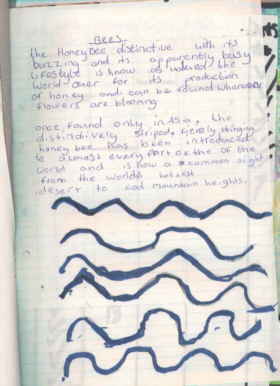 Bees.
the HoneyBee distinctive with its
buzzing and its apparently busy
Lifestyle is know as indeed the
world over for its production
of honey and can be found whenever
flowers are blooming
once found only in Asia, the
distinctively striped, fiercly stinging
honey bee has been introduced
to almost every part of the of the
world and is now a common sight
from the worlds hottest
desert to cool mountain heights.